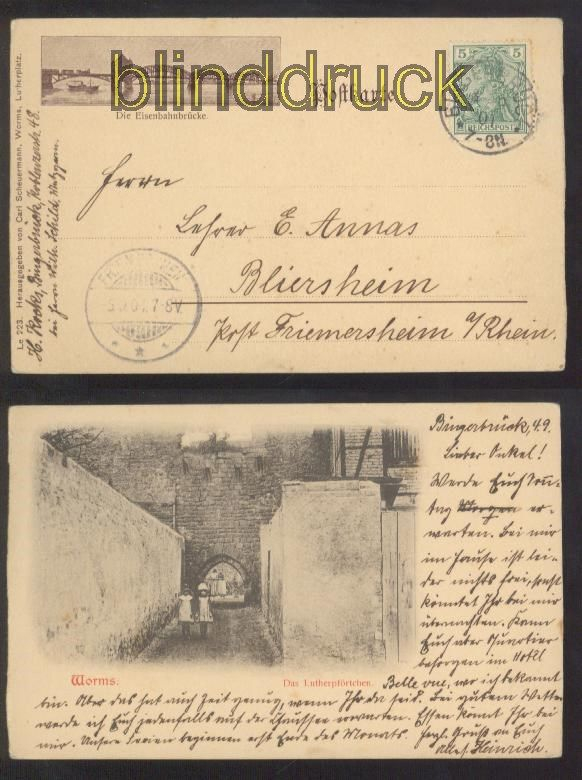 blinddruck
Die Eisenbahnbrücke.
Postkarte
5
REICHSPOST
Le 223. Herausgegeben von Carl Scheuermann, Worms, Lutherplatz.
bei Herrn Wilh. Schild, Metzgern.
Herrn
Lehrer E. Annas
Bliersheim
Post Friemersheim a/Rhein.
7-8N.
7-8V.
Bingerbrück, 4.9.
Lieber Onkel!
Werde Euch Sonn-
tag Morgen er-
warten. Bei mir
im Hause ist lei-
der nichts frei, sonst
könntet Ihr bei mir
übernachten. Kann
Euch aber Quartier
besorgen im Hotel
Belle vue, wo ich bekannt
bin. Aber das hat auch Zeit genug, wenn Ihr da seid. Bei gutem Wetter
werde ich Euch jedenfalls auf der Chaussee erwarten. Essen könnt Ihr bei
mir. Unsere Ferien beginnen erst Ende des Monats. Herzl. Gruß an Euch
alle! Heinrich.
Worms.
Das Lutherpförtchen.
blinddruck